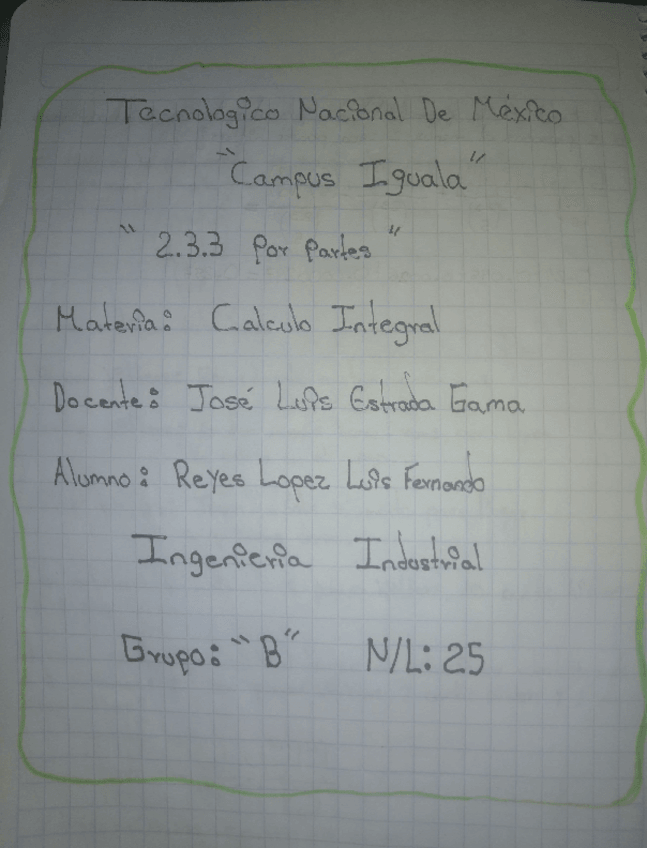 Tecnologico Nacional De México
"Campus Iguala"
"2.3.3 Por Partes"
Materia: Calculo Integral
Docente: José Luis Estrada Gama
Alumno: Reyes Lopez Luis Fernando
Ingenieria Industrial
Grupo: "B" N/L: 25